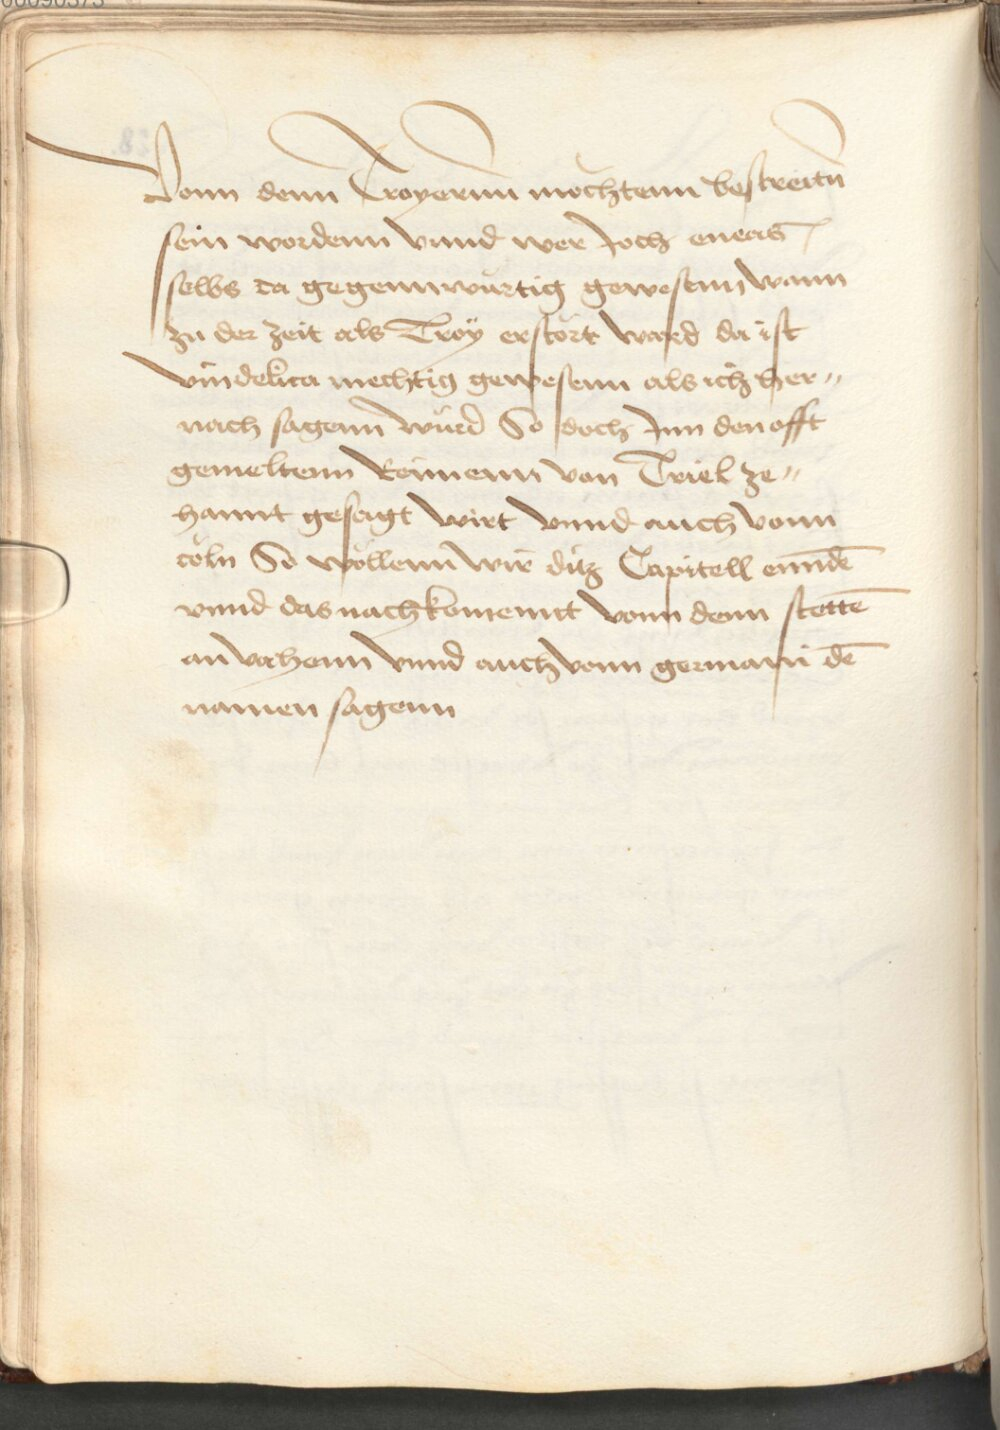 Vonn denn Troyernn mochtenn bestreitn̄
sein wordenn vnnd wer Joch eneas
selbs da gegennwurtig gewesenn wann
zu der zeit als Troÿ erstört ward da ist
vindelica mechtig gewesenn als ich her〃
nach sagenn würd So doch Jnn den offt
gemeltenn Reimenn von Triel ze〃
hannt gesagt wirt vnnd auch vonn
cöln So wöllenn wir ditz Capitell ennde̅
vnnd das nachkoment vonn denn stette̅
anvahenn vnnd auch vonn germani de̅
namen sagenn